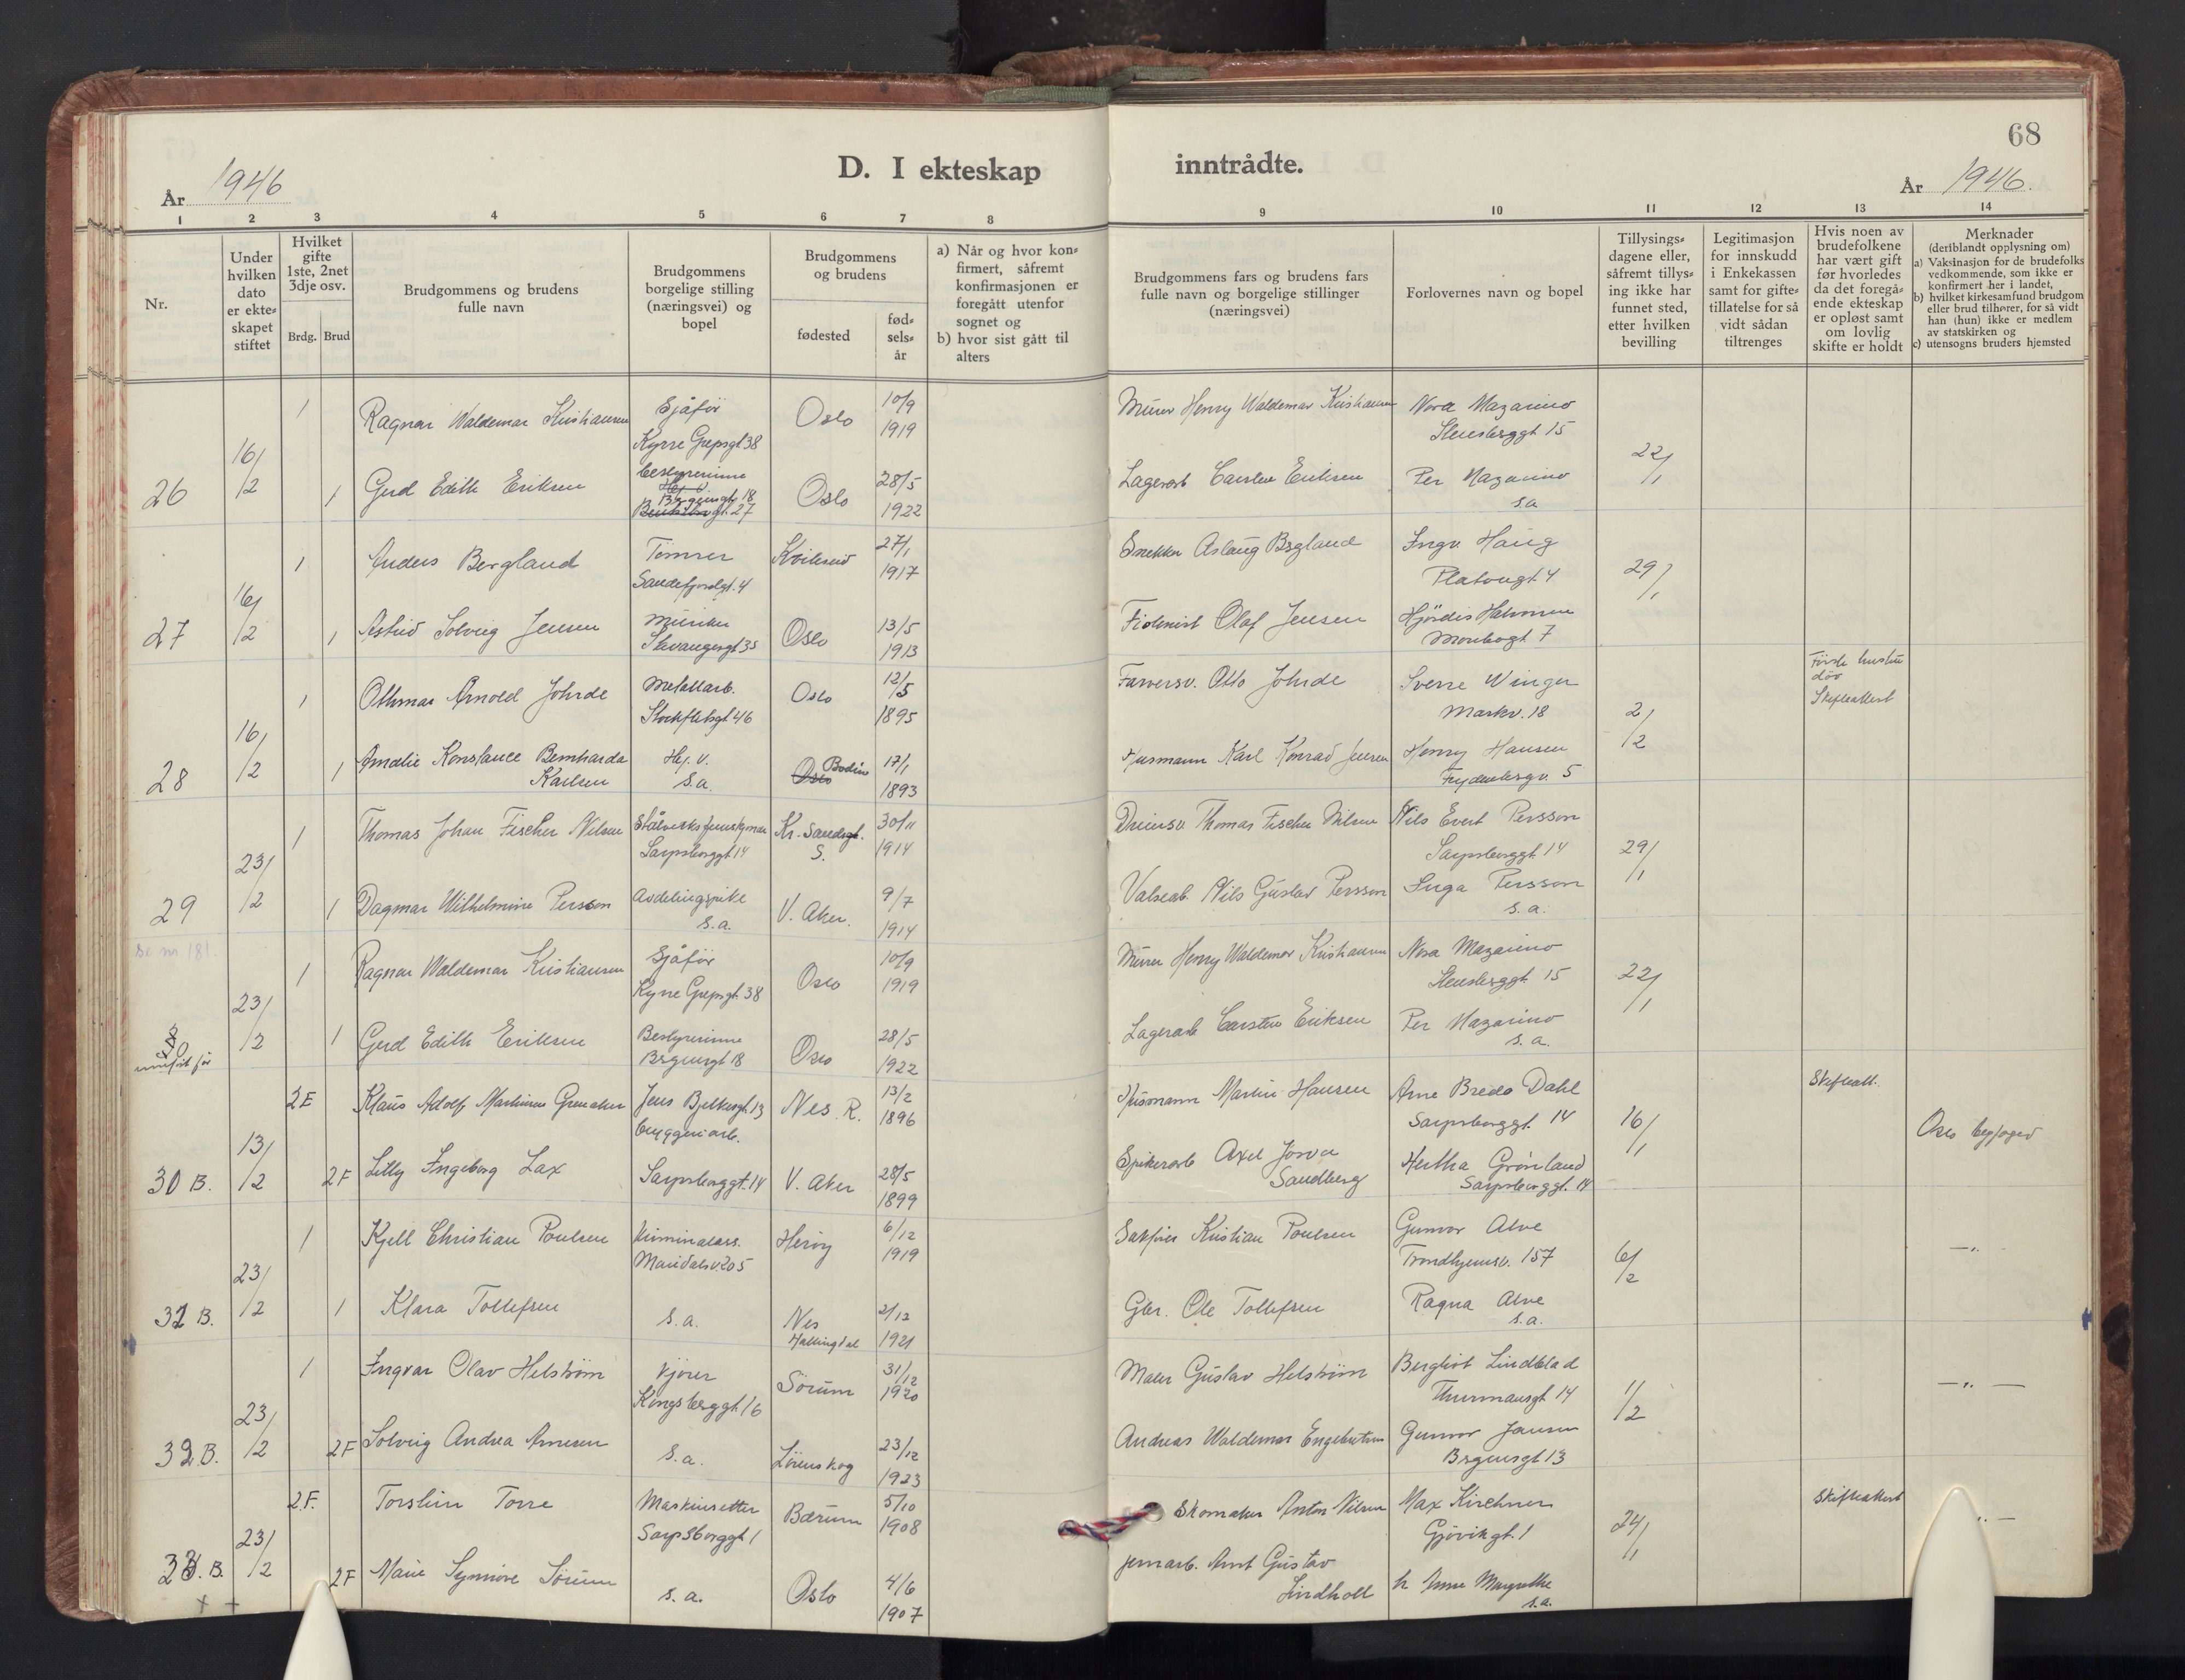 68
D. I ekteskap inntrådte.
År 1946
År 1946.
1 2 3 4 5 6 7 8 9 10 11 12 13 14
Nr.
Under hvilken dato er ekteskapet stiftet
Hvilket gifte 1ste, 2net 3dje osv.
Brdg. Brud
Brudgommens og brudens fulle navn
Brudgommens borgelige stilling (næringsvei) og bopel
Brudgommens og brudens
fødested
fødselsår
a) Når og hvor konfirmert, såfremt konfirmasjonen er foregått utenfor sognet og
b) hvor sist gått til alters
Brudgommens fars og brudens fars fulle navn og borgelige stillinger (næringsvei)
Forlovernes navn og bopel
Tillysingsdagene eller, såfremt tillysing ikke har funnet sted, etter hvilken bevilling
Legitimasjon for innskudd i Enkekassen samt for giftetillatelse for så vidt sådan tiltrenges
Hvis noen av brudefolkene har vært gift før hvorledes da det foregående ekteskap er opløst samt om lovlig skifte er holdt
Merknader
(deriblandt opplysning om)
a) Vaksinasjon for de brudefolks vedkommende, som ikke er konfirmert her i landet,
b) hvilket kirkesamfund brudgom eller brud tilhører, for så vidt han (hun) ikke er medlem av statskirken og
c) utensogns bruders hjemsted
1 Ragnar Waldemar Kristiansen Sjåfør Oslo 10/9 1919 Murer Henry Waldemar Kristiansen Nora Mazarino
Kyrre Grepsgt 38 Stensberggt 15
26 16/2 1 Gerd Edith Eriksen bestyrerinne Oslo 28/5 1922 Lagerarb Carsten Eriksen Per Mazarino 22/1
Hej. v.
Bergensgt. 18 s.a.
gt. 27
1 Anders Bergland Tømrer Kviteseid 27/1 1917 Snekker Aslaug Bergland Ingv. Haug
Sandefjordgt. 4 Platougt 4 29/1
27 16/2 1 Astrid Solveig Jensen Oslo 13/5 1913 Fiolinist Olaf Jensen Hjördis Halvorsen
Stavangergt 35 7
1 Othmar Arnold Johrde Metallarb. Oslo 12/5 1895 Farversv. Otto Johrde Sverre Winger Første hustru død
Stockflethsgt 46 Markv. 18 Skifteattest
28 16/2 1 Amalie Konstance Bernharda Karlsen Hej. v. Oslo Bodin 17/1 1893 Husmann Karl Konrad Jensen Henry Hansen 2/2
s.a. Frydenbergv. 5
1 Thomas Johan Fischer Nilsen Kr. Sandsgt. S. 30/11 1914 Thomas Fischer Nilsen Nils Evert Persson
Sarpsborggt 14 Sarpsborggt 14 29/1
29 23/2 1 Dagmar Wilhelmine Persson Avdelingspike V. Aker. 9/7 1914 Valsearb. Nils Gustav Persson Inga Persson
s.a. s.a.
1 Ragnar Waldemar Kristiansen Sjåfør Oslo 10/9 1919 Murer Henry Waldemar Kristiansen Nora Mazarino
Kyrre Grepsgt. 38 Stensberggt 15 22/1
30 23/2 1 Gerd Edith Eriksen Bestyrerinne Oslo 28/5 1922 Lagerarb Carsten Eriksen Per Mazarino
Bergensgt 18 s.a.
2F Klaus Adolf Martinius Grenaker Jens Bjelkesgt. 13 Nes. R. 13/2 1896 Husmann Martin Hansen Arne Bredo Dahl Skifteatt.
bryggeriarb. Sarpsborggt. 14 16/1 Oslo byfoged
30 B. 13/2 2F Lilly Ingeborg Lax Sarpsborggt. 14 V. Aker 28/5 1899 Spikerarb Axel Sandberg Hertha Grønland
Sarpsborggt. 14
1 Kjell Christian Poulsen Kriminalass. Herøy 6/12 1919 Sakfører Kristian Poulsen Gunvor Alve
Maridalsv. 205 Trondhjemsv. 157 6/2 —"—
31 B. 23/2 1 Klara Tollefsen s.a. Nes Hallingdal 2/12 1921 Gbr. Ole Tollefsen Ragna Alve
s.a.
1 Ingvar Olav Helstrøm Kjører Sørum 31/12 1920 Maler Gustav Helstrøm Bergliot Lindblad
Kongsberggt. 16 Thurmannsgt 14 1/2 —"—
32 B. 23/2 2F Solveig Andrea Arnesen s.a. Lørenskog 23/12 1923 Andreas Waldemar Engebretsen Gunvor Jansen
Bergensgt 13
2F. Torstein Torre Maskinsetter Bærum 5/10 1908 Skomaker Anton Nilsen Max Kirchner Skifteattest
Sarpsborggt 1 Gjøvikgt. 1 24/1 "—
33 B. 23/2 2F Marie Synnøve Sørum s.a. Oslo 4/6 1907 Jernarb. Arnt Gustav Lindholt Anne Margrethe
s.a.